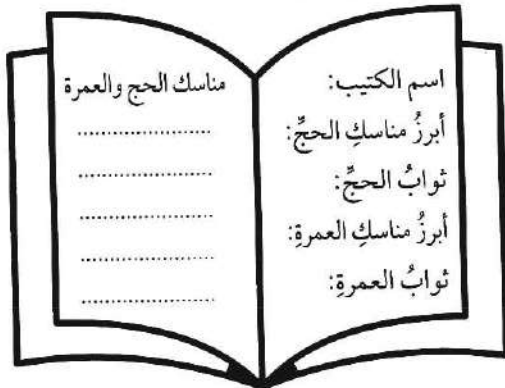 اسم الكتيب:
أبرزُ مناسكِ الحجِّ:
ثوابُ الحجِّ:
أبرزُ مناسكِ العمرةِ:
ثوابُ العمرةِ:
مناسك الحج والعمرة
........................
........................
........................
........................
........................